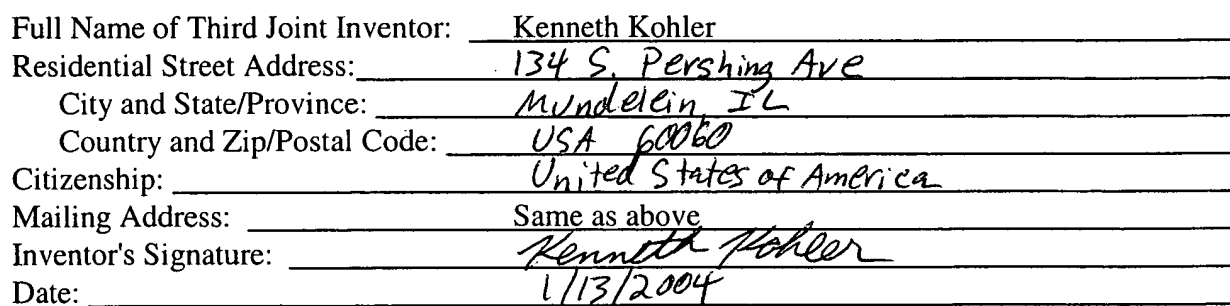 Full Name of Third Joint Inventor: Kenneth Kohler
Residential Street Address: 134 S. Pershing Ave
City and State/Province: Mundelein, IL
Country and Zip/Postal Code: USA 60060
Citizenship: United States of America
Mailing Address: Same as above
Inventor's Signature: Kenneth Kohler
Date: 1/13/2004